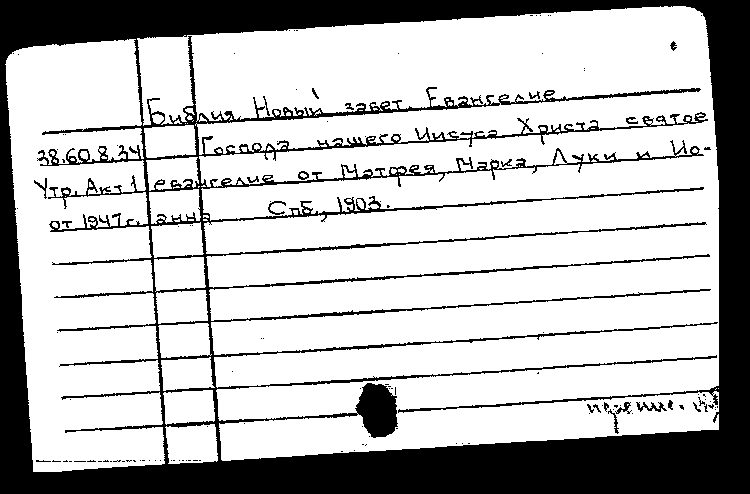 Библия. Новый завет. Евангелие.
38.60.8.34 Господа нашего Иисуса Христа святое
Утр. Акт 1 евангелие от Матфея, Марка, Луки и Ио-
от 1947 г. анна Спб., 1903.